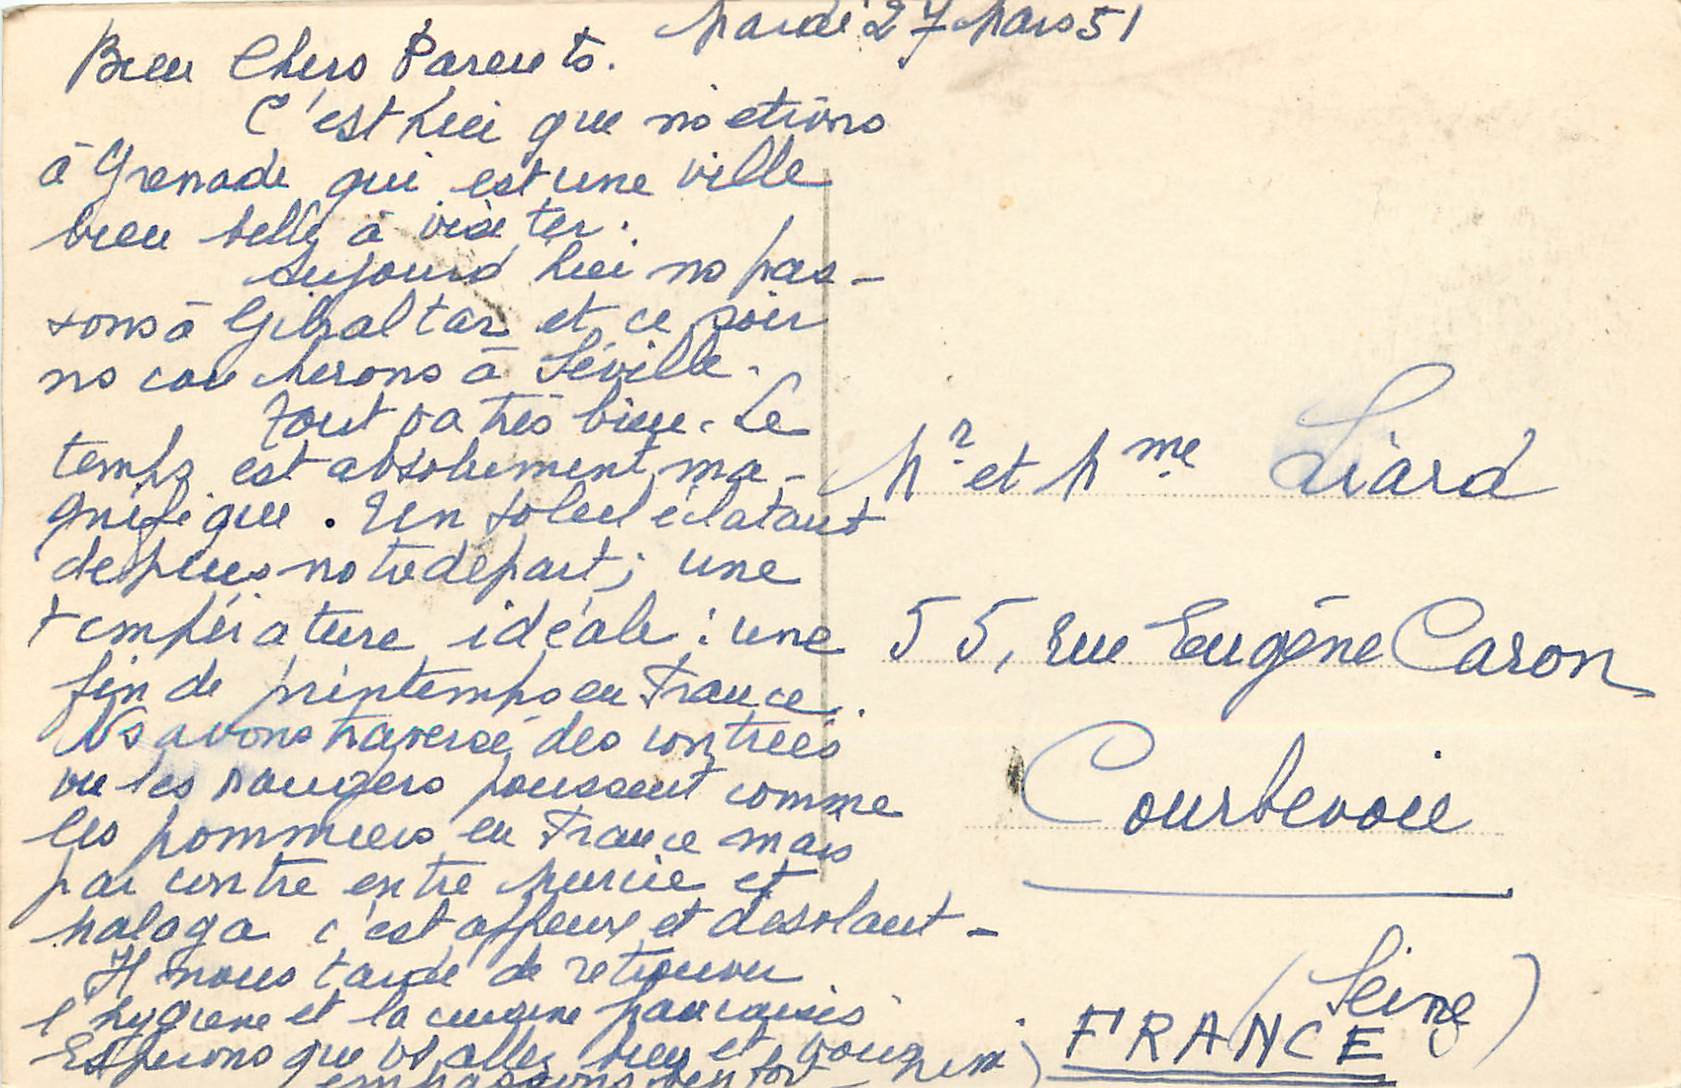 Mardi 27 Mars 51
Bien Chers Parents.
C'est hier que ns étions
à Grenade qui est une ville
bien belle à visiter.
Aujourd'hui ns pas-
sons à Gibraltar et ce soir
ns coucherons à Séville.
Tout va très bien. Le
temps est absolument ma-
gnifique. Un soleil éclatant
depuis notre départ ; une
température idéale : une
fin de printemps en France.
Ns avons traversé des contrées
où les orangers poussent comme
les pommiers en France mais
par contre entre Murcie et
Malaga c'est affreux et désolant -
Il nous tarde de retrouver
l'hygiène et la cuisine françaises
Espérons que vs allez bien et vous
embrassons bien fort
Mr. et Mme Liard
55, rue Eugène Caron
Courbevoie
(Seine)
FRANCE